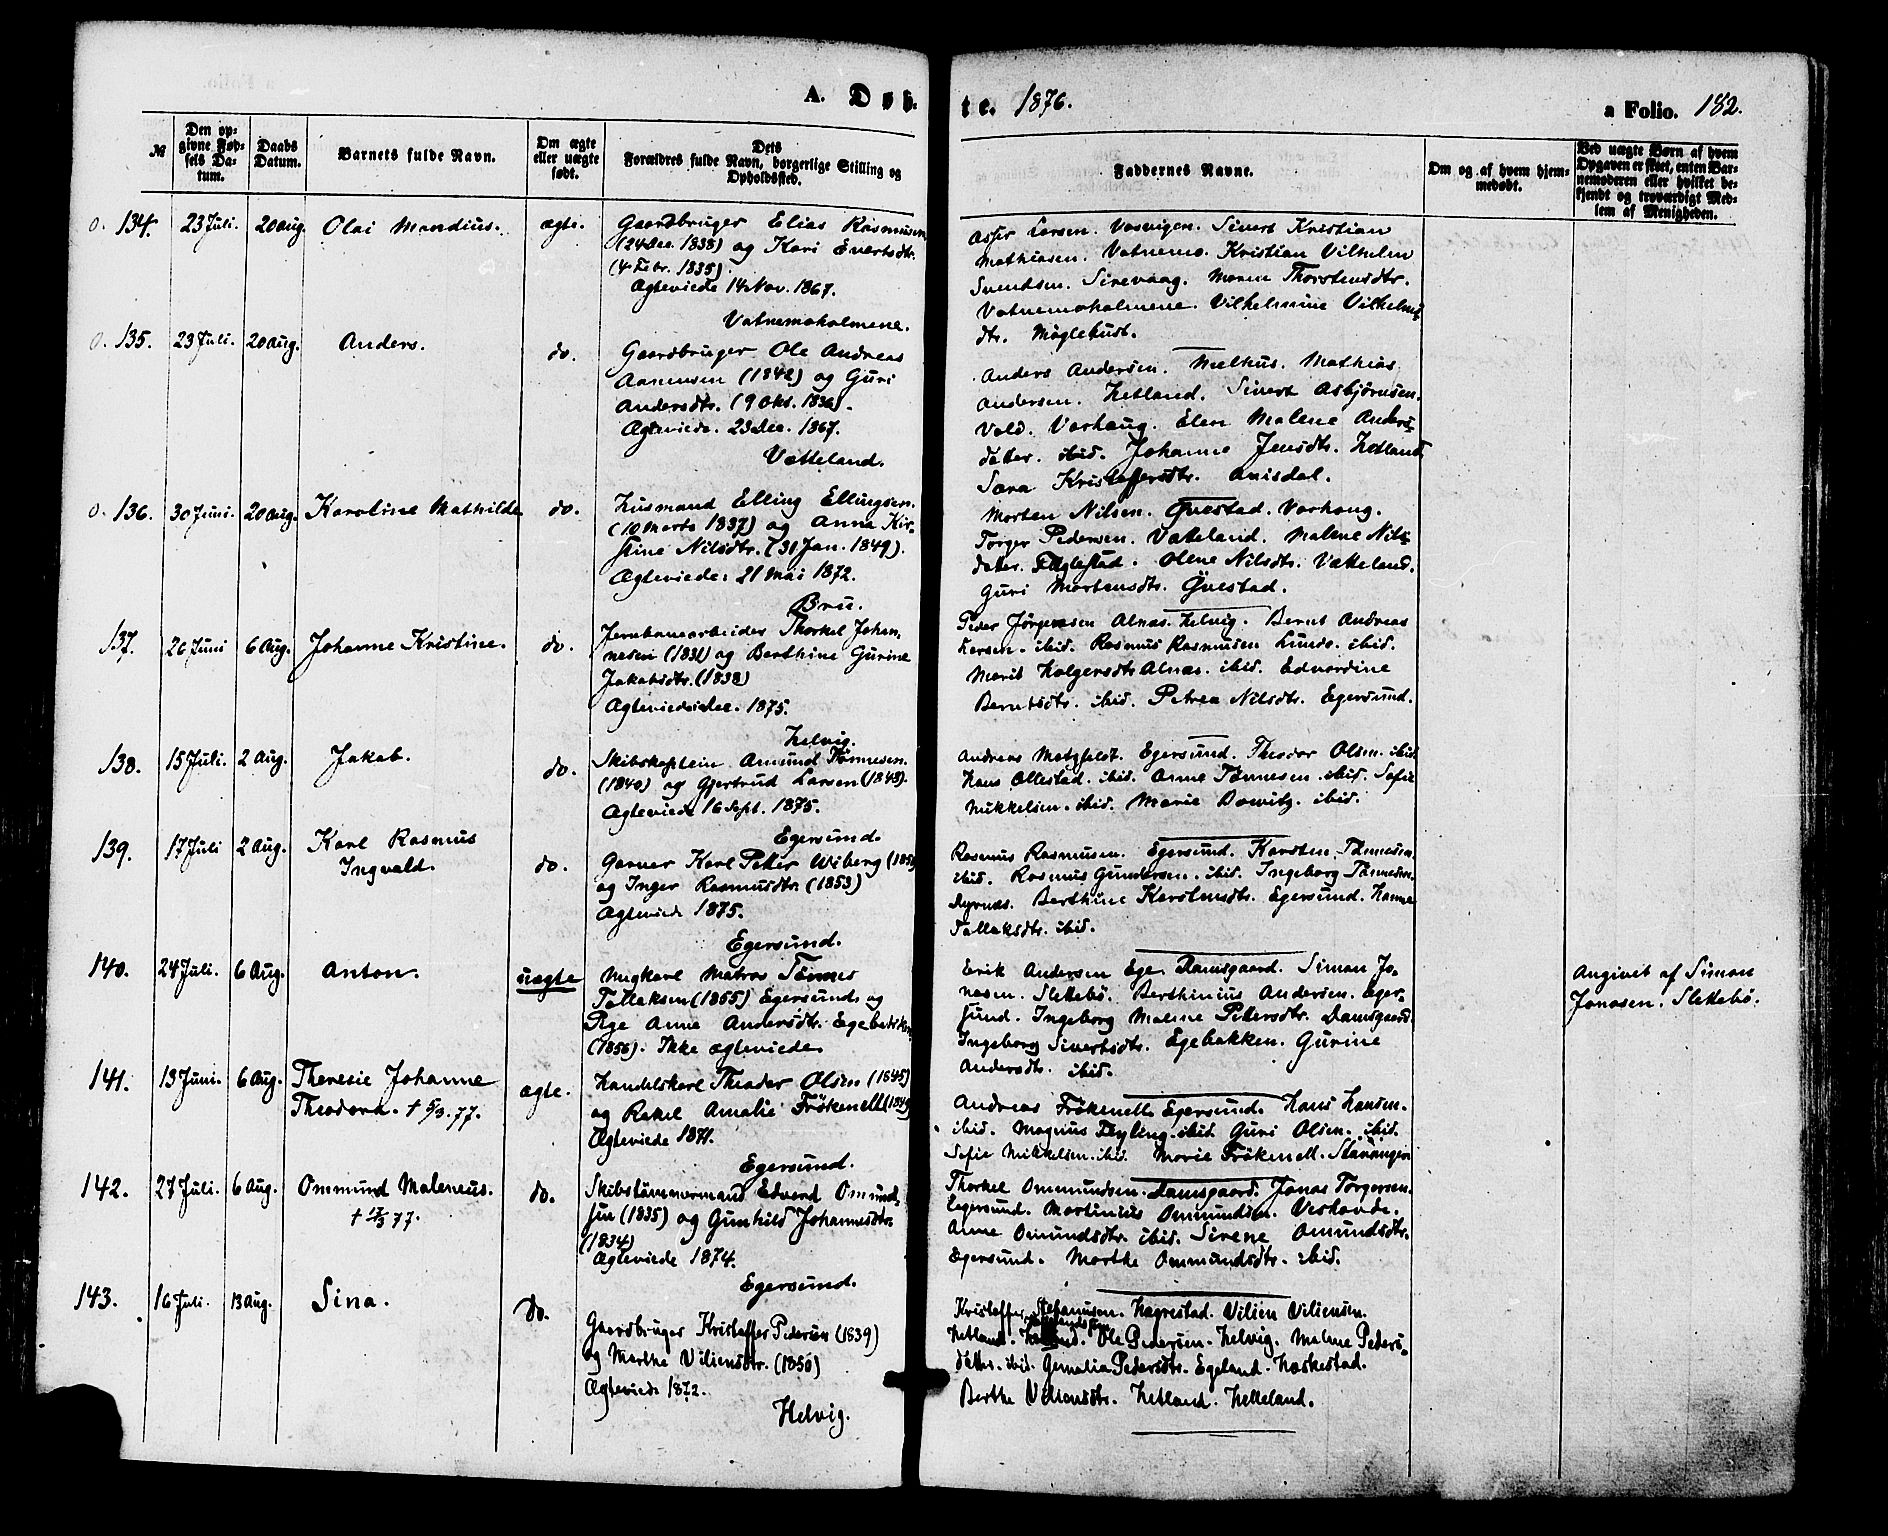 A. Døb-
te. 1876.
a Folio. 182.
№
Den op-
givne Fød-
sels Da-
tum.
Daabs
Datum.
Barnets fulde Navn.
Om ægte
eller uægte
født.
Dets
Forældres fulde Navn, borgerlige Stilling og
Opholdssted.
Faddernes Navne.
Om og af hvem hjem-
medøbt.
Ved uægte Børn af hvem
Opgaven er skeet, enten Bar-
nemoderen eller hvilket be-
kjendt og troværdigt Med-
lem af Menigheden.
o. 134. 23 Juli. 20 aug. Olai Mandius. ægte.
Gaardbruger Elias Rasmusen
(24 Dec. 1838) og Kari Evertsdtr.
(4 Febr. 1835).
Ægteviede 14 Nov. 1867.
Vatnemoholmene.
Larsen. Vasvigen. Sivert Kristian
Mathiasen. Vatnemo. Kristian Vilhelm
Svendsen. Sirevaag. Maren Thorstensdtr.
Vatnemoholmene. Vilhelmine Vilhelms-
dtr. Møglehust.
o. 135. 23 Juli. 20 aug. Anders. do.
Gaardbruger Ole Andreas
Aanensen (1842) og Guri
Andersdtr. (9 Okt. 1836).
Ægteviede. 23 Dec. 1867.
Vatteland.
Anders Andersen. Mælhus. Mathias
Andersen. Hetland. Sivert Asbjørnsen.
Vold. Varhaug. Elen Malene Anders-
datter. ibid. Johanne Jensdtr. Hetland
Sara Kristoffersdtr. Anisdal.
o. 136. 30 Juni. 20 aug. Karoline Mathilde do.
Husmand Elling Ellingsen.
(10 Marts 1837) og Anne Kir-
stine Nilsdtr. (31 Jan. 1849).
Ægteviede: 21 Mai 1872.
Bru.
Morten Nilsen. Qvestad. Varhaug.
Torger Pedersen. Vatteland. Malene Nils-
datter. Fuglestad. Olene Nilsdtr. Vatteland.
Guri Mortensdtr. Qvestad.
137. 26 Juni 6 Aug. Johanne Kristine. do.
Jernbanearbeider Thorkel Johan-
nesen (1832) og Berthine Gurine
Jakobsdtr. (1838)
Ægteviede Dec. 1875.
Helvig.
Peder Jørgensen Alnæs. Helvig. Bernt Andreas
Larsen. ibid. Rasmus Rasmusen Lunde. ibid.
Marit Holgersdtr Alnæs. ibid. Edvardine
Berntsdtr. ibid. Petrea Nilsdtr. Egersund.
138. 15 Juli. 2 Aug. Jakob. do.
Skibskaptein Amund Tønnesen.
(1840) og Gjertrud Larsen (1848).
Ægteviede 16 Sept. 1875.
Egersund.
Andreas Metzfeldt. Egersund. Theodor Olsen. ibid
Hans Ollestad. ibid. Anne Tønnesen. ibid. Sofie
Mikkelsen. ibid. Marie Dowitz. ibid.
139. 17 Juli 2 Aug. Karl Rasmus
Ingvald. do.
Garver Karl Petter Wiberg
og Inger Rasmusdtr. (1853)
Ægteviede 1875.
Egersund.
Rasmus Rasmusen. Egersund. Karsten Tønnesen.
ibid. Rasmus Gundersen. ibid. Ingeborg Tønnesen.
Berthine Karstensdtr. Egersund. Hanne
Tollaksdtr. ibid.
140. 24 Juli. 6 Aug. Anton. uægte
Ungkarl Matros Tønnes
Tollaksen (1855) Egersund og
Pige Anne Andersdtr. Egebakken
(1856). Ikke ægteviede.
Erik Andersen Ege Damsgaard. Simon Jo-
nasen. Slettebø. Berthinius Andersen. Eger-
sund. Ingeborg Malene Petersdtr. Damsgaard.
Ingeborg Sivertsdtr. Egebakken. Gurine
Andersdtr. ibid.
Angivet af Simon
Jonasen. Slettebø.
141. 13 Juni. 6 Aug. Theresie Johanne
Theodora. † 5/3. 77. ægte.
Handelskarl Theodor Olsen (1845)
og Rakel Amalie Frøkenell (1849)
Ægteviede 1871.
Egersund.
Andreas Frøkenell. Egersund. Hans Hansen.
ibid. Magnus Feyling. ibid Guri Olsen. ibid.
Sofie Mikkelsen. ibid. Marie Frøkenell. Stavanger
142. 27 Juli. 6 Aug. Ommund Maleneus.
77. do.
Skibstømmermand Edvard Omund-
sen (1835) og Gunhild Johannesdtr.
(1834)
Ægteviede 1874.
Egersund.
Thorkel Ommundsen. Damsgaard. Jonas Torgersen.
Egersund. Martinius Ommundsen. Veshovde.
Anne Omundsdtr. ibid. Sirene Omundsdtr.
Egersund. Marthe Ommundsdtr. ibid.
143. 16 Juli. 13 Aug. Sina. do.
Gaardbruger Kristoffer Pedersen (1839)
og Marthe Viliensdtr. (1850)
Ægteviede 1872.
Helvig.
Kristoffer Stefanusen. Hagrestad. Vilien Viliensen.
Hetland. Ole Pedersen. Helvig. Malene Peders-
datter. ibid. Pedersdtr. Egeland. Haskestad.
Berthe Viliensdtr. Hetland. Helleland.